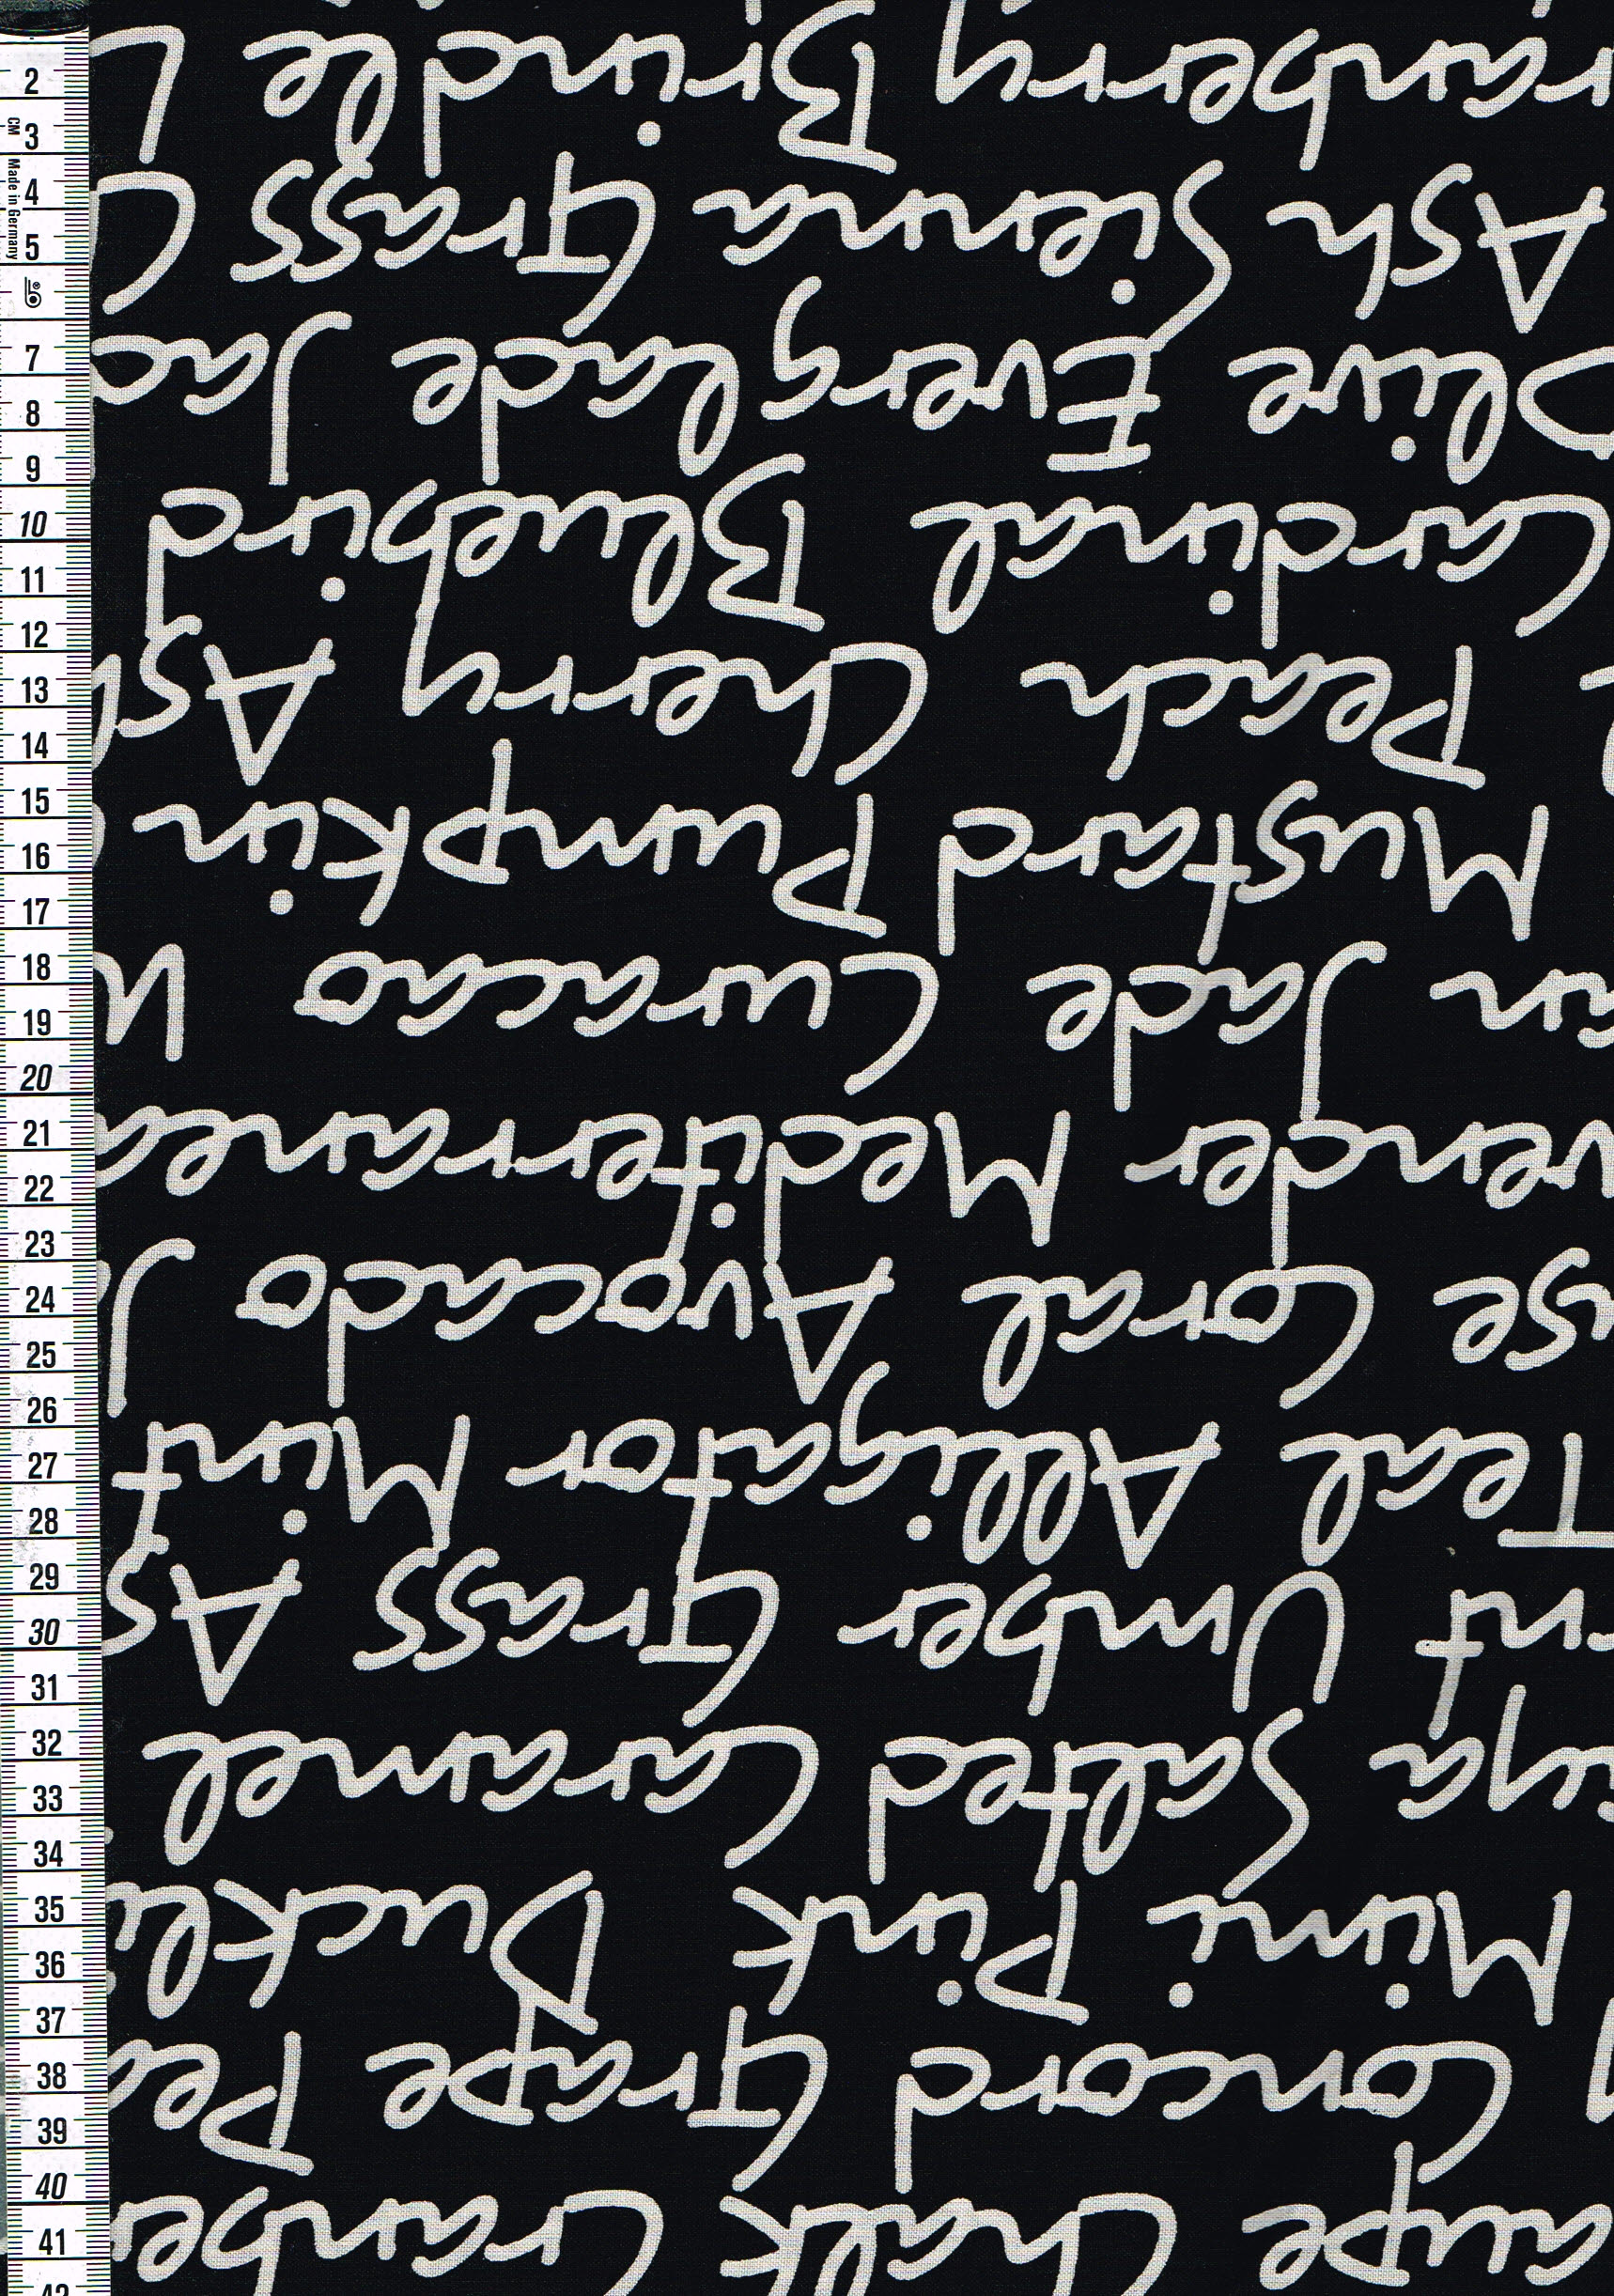 aupe Chalk Cranber
Concord Grape Pea
Mini Pink Duckli
Salted Caramel
nt Umber Grass As
Teal Alligator Mint
se Coral Avocado J
vender Mediterranea
Jade Curacao
Mustard Pumpkin
Peach Cherry Ash
Cardinal Bluebird
Olive Everglade Jac
Ash Sienna Grass C
ranberry Brindle L
CM Made in Germany
2
3
4
5
7
8
9
10
11
12
13
14
15
16
17
18
19
20
21
22
23
24
25
26
27
28
29
30
31
32
33
34
35
36
37
38
39
40
41